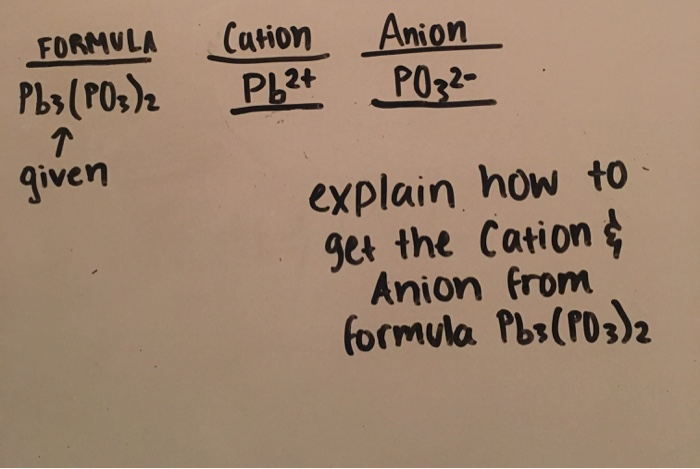 FORMULA Cation Anion
Pb₃(PO₃)₂ Pb²⁺ PO₃²⁻
↑
given
explain how to
get the Cation &
Anion from
formula Pb₃(PO₃)₂